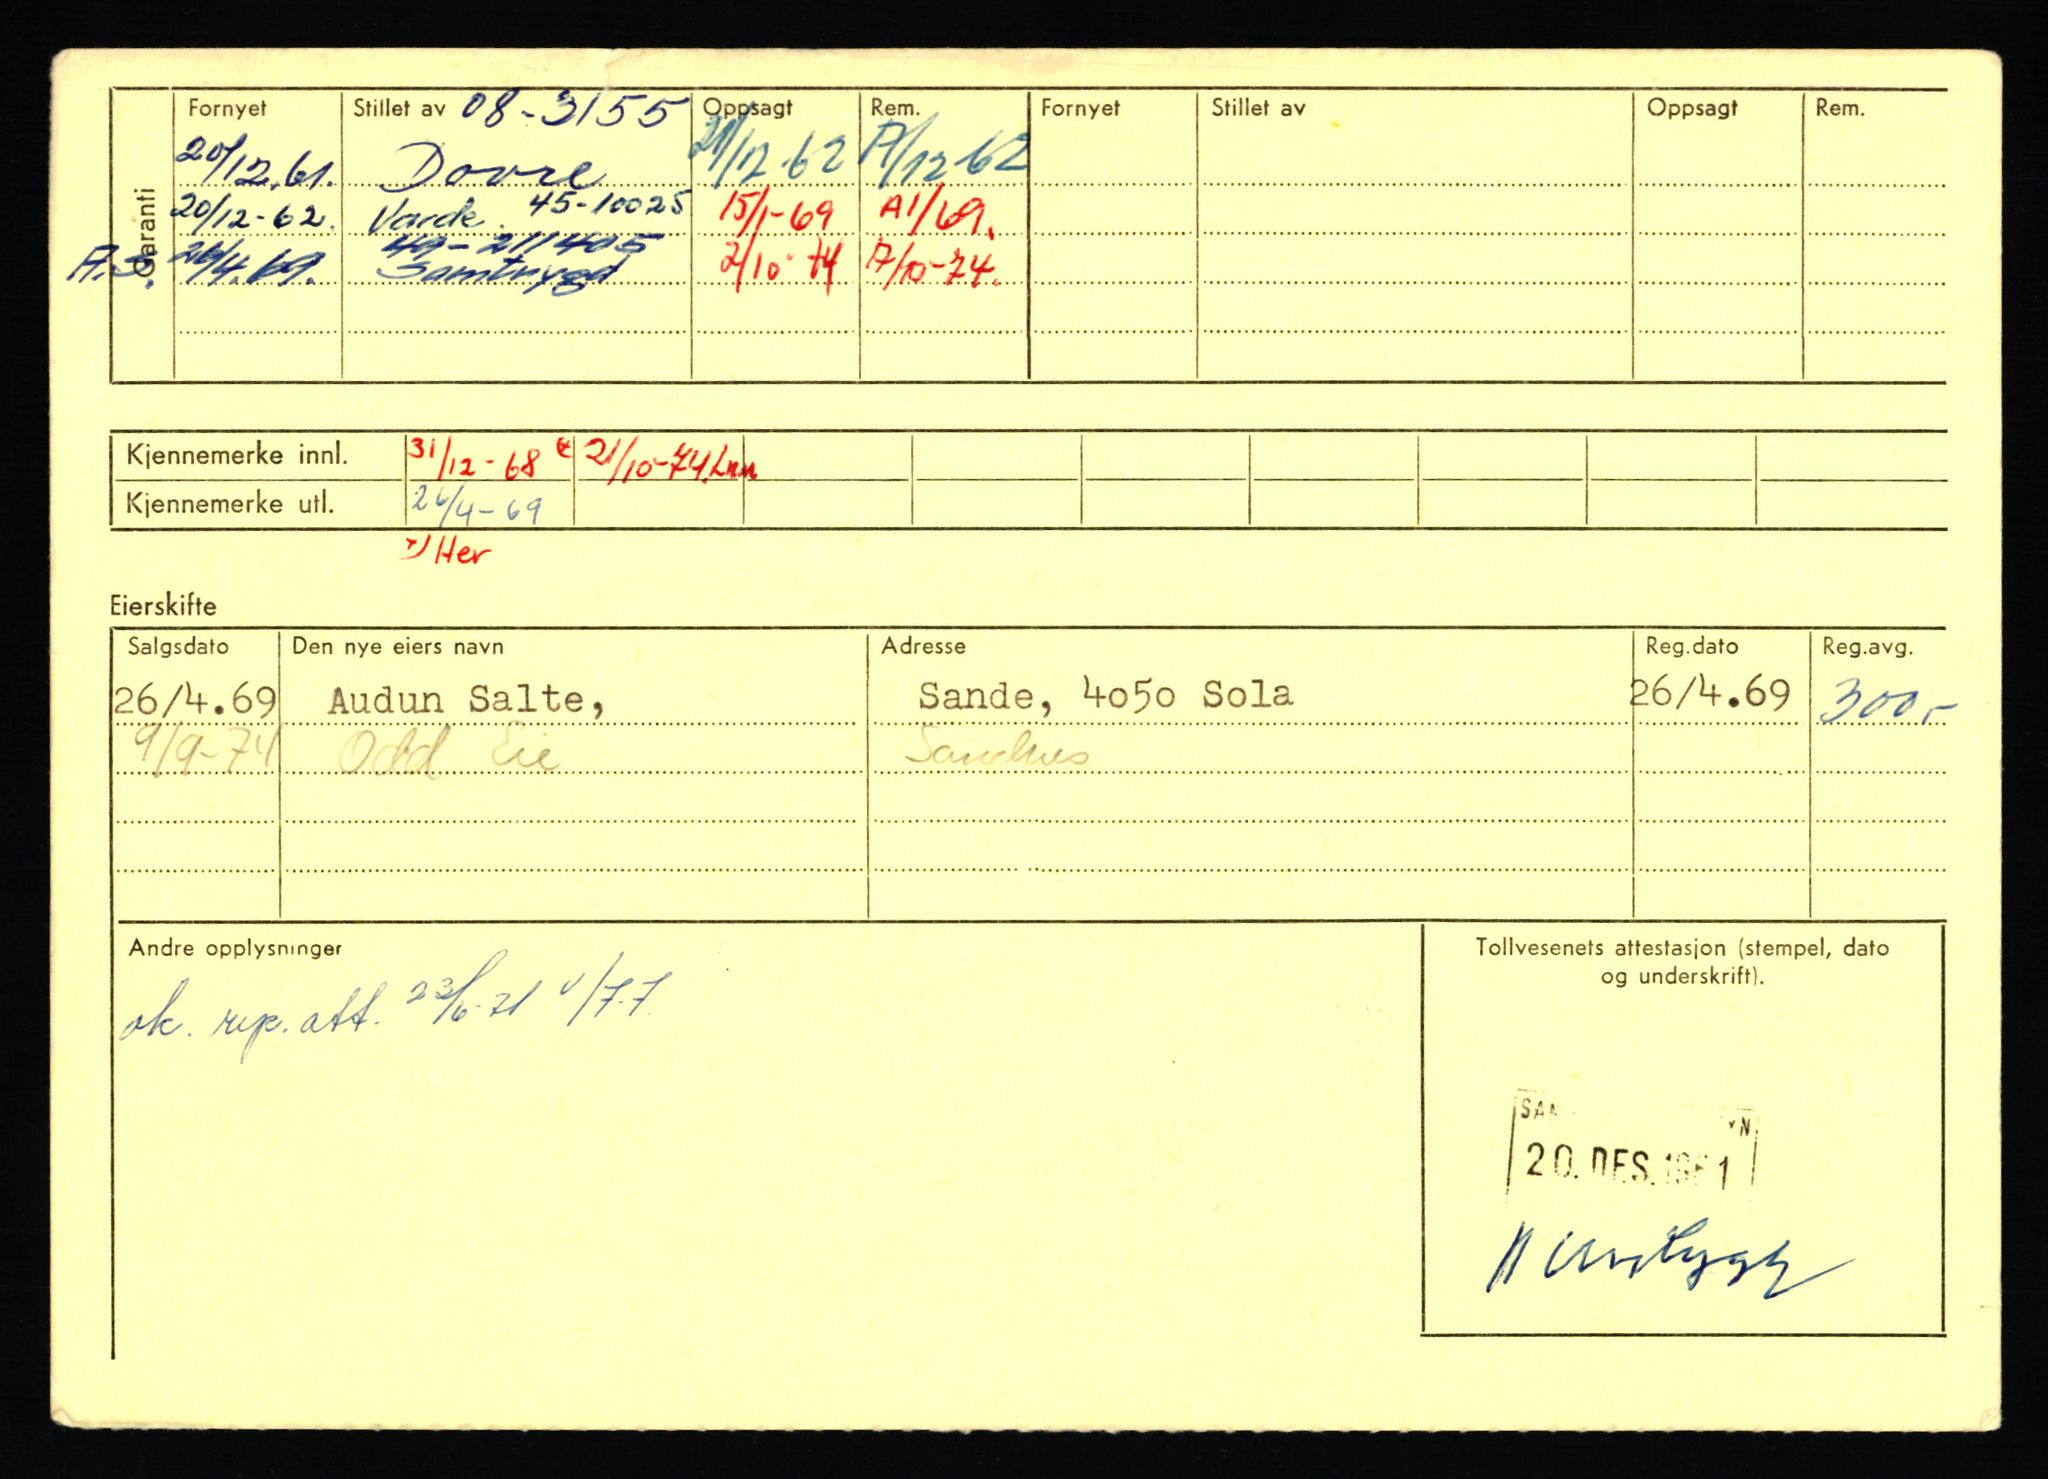 Garanti
Fornyet Stillet av 08-3155 Oppsagt Rem. Fornyet Stillet av Oppsagt Rem.
20/12.61. Dovre 21/12-62 A/12-62
20/12-62. Varde 45-10025 15/1-69 A1/69.
49-211405
A.S. 26/4.69. Samtrygd 2/10-74 A/10-74.
Kjennemerke innl. 31/12-68 21/10-74.
Kjennemerke utl. 26/4-69
Her
Eierskifte
Salgsdato Den nye eiers navn Adresse Reg.dato Reg.avg.
26/4.69 Audun Salte, Sande, 4050 Sola 26/4.69 300,-
9/9-74 Odd Eie Sandnes
Andre opplysninger
ok. rep. att. 23/6-71 /7-7
Tollvesenets attestasjon (stempel, dato
og underskrift).
20. DES. 1961